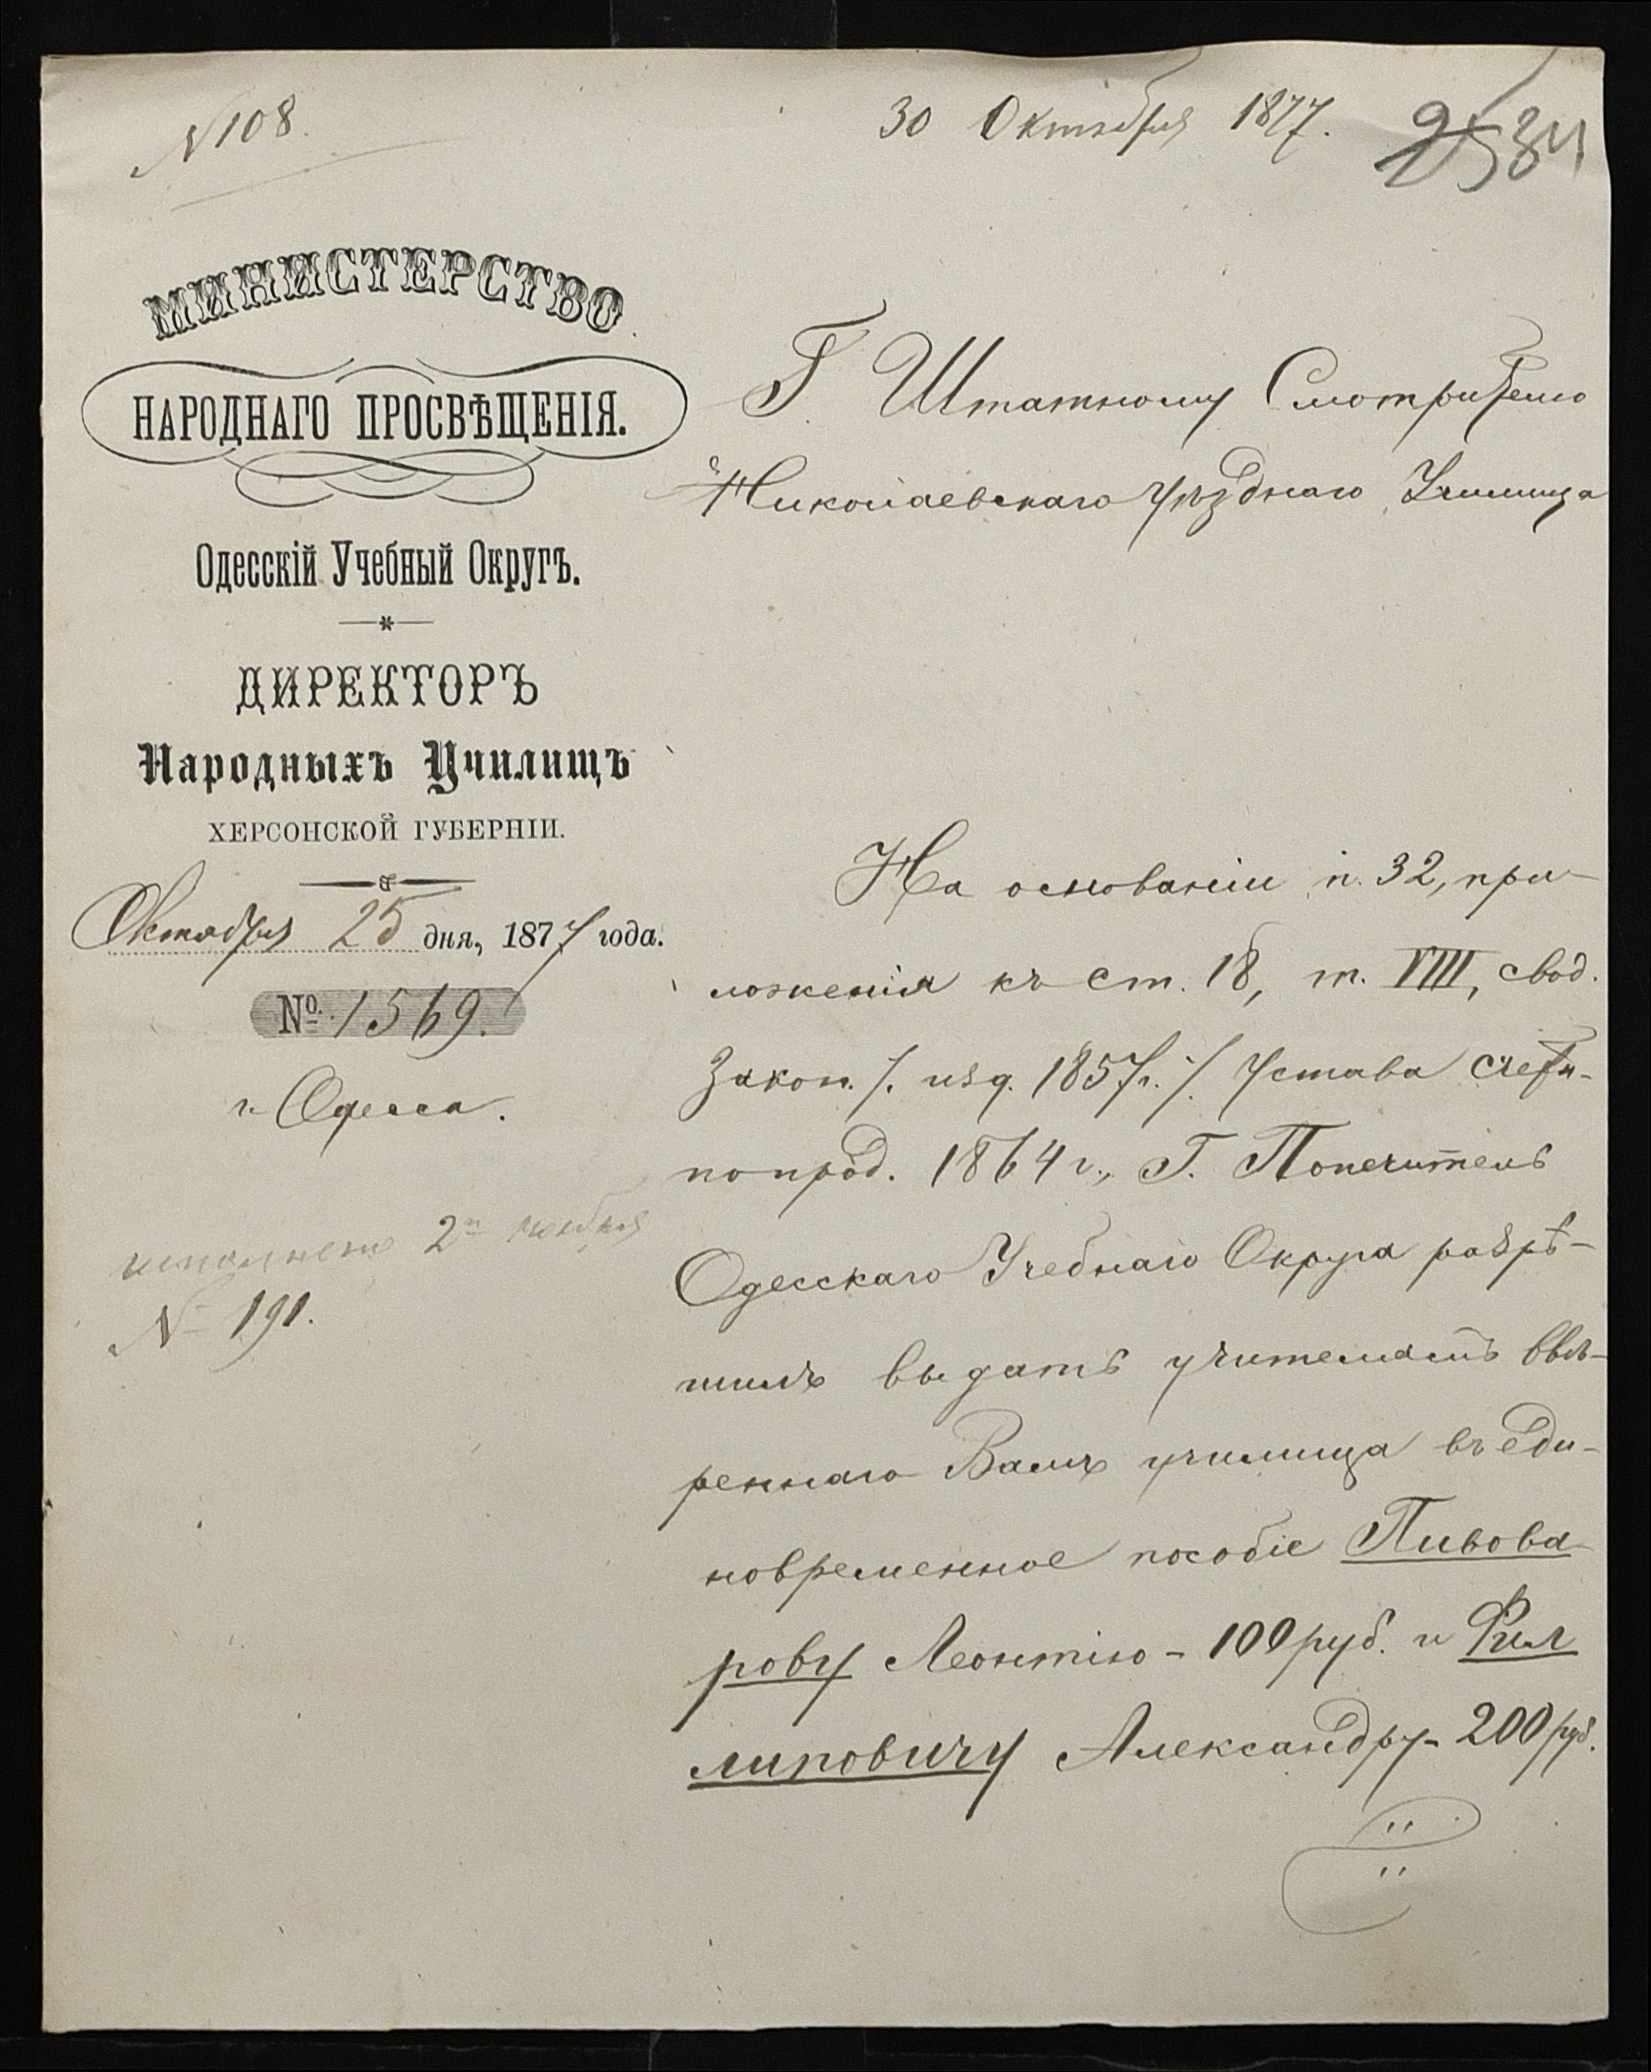 № 108.
30 Октября 1877.
25 34
МИНИСТЕРСТВО
НАРОДНАГО ПРОСВѢЩЕНІЯ.
Одесскій Учебный Округъ.
ДИРЕКТОРЪ
Народныхъ Училищъ
ХЕРСОНСКОЙ ГУБЕРНІИ.
Октября 25 дня, 1877 года.
№ 1569.
г. Одесса.
исполнено 2го ноября
№ 191.
Г. Штатному Смотрителю
Николаевскаго Уѣзднаго Училища
На основаніи п. 32, при-
ложенія къ ст. 18, т. VIII, свод.
Закон. /. изд. 1857г. /. Устава Счетн.
по прод. 1864 г., Г. Попечитель
Одесскаго Учебнаго Округа разрѣ-
шилъ выдать учителямъ ввѣ-
реннаго Вамъ училища въ еди-
новременное пособіе Пивова-
рову Леонтію - 100 руб. и Фил
липовичу Александру - 200 руб.